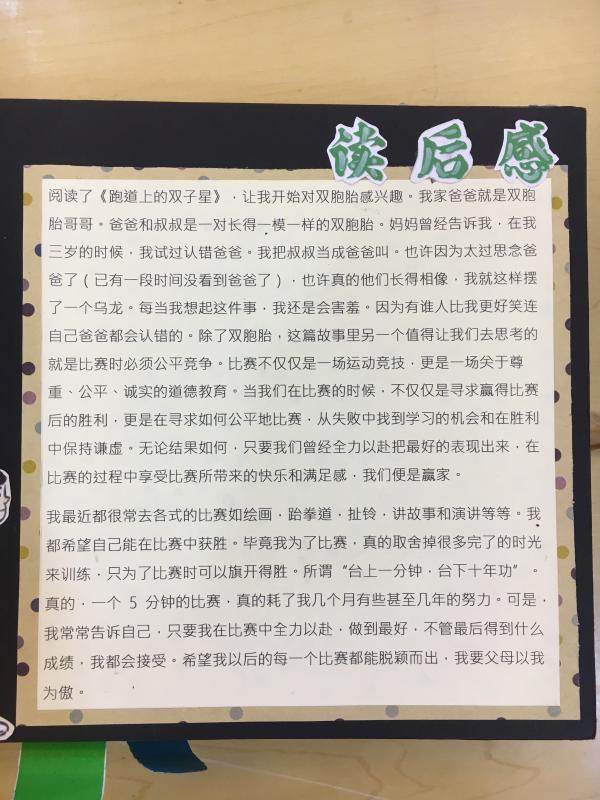 读后感
阅读了《跑道上的双子星》，让我开始对双胞胎感兴趣。我家爸爸就是双胞
胎哥哥。爸爸和叔叔是一对长得一模一样的双胞胎。妈妈曾经告诉我，在我
三岁的时候，我试过认错爸爸。我把叔叔当成爸爸叫。也许因为太过思念爸
爸了（已有一段时间没看到爸爸了），也许真的他们长得相像，我就这样摆
了一个乌龙。每当我想起这件事，我还是会害羞。因为有谁人比我更好笑连
自己爸爸都会认错的。除了双胞胎，这篇故事里另一个值得让我们去思考的
就是比赛时必须公平竞争。比赛不仅仅是一场运动竞技，更是一场关于尊
重、公平、诚实的道德教育。当我们在比赛的时候，不仅仅是寻求赢得比赛
后的胜利，更是在寻求如何公平地比赛，从失败中找到学习的机会和在胜利
中保持谦虚。无论结果如何，只要我们曾经全力以赴把最好的表现出来，在
比赛的过程中享受比赛所带来的快乐和满足感，我们便是赢家。
我最近都很常去各式的比赛如绘画，跆拳道，扯铃，讲故事和演讲等等。我
都希望自己能在比赛中获胜。毕竟我为了比赛，真的取舍掉很多完了的时光
来训练，只为了比赛时可以旗开得胜。所谓“台上一分钟，台下十年功”。
真的，一个 5 分钟的比赛，真的耗了我几个月有些甚至几年的努力。可是，
我常常告诉自己，只要我在比赛中全力以赴，做到最好，不管最后得到什么
成绩，我都会接受。希望我以后的每一个比赛都能脱颖而出，我要父母以我
为傲。